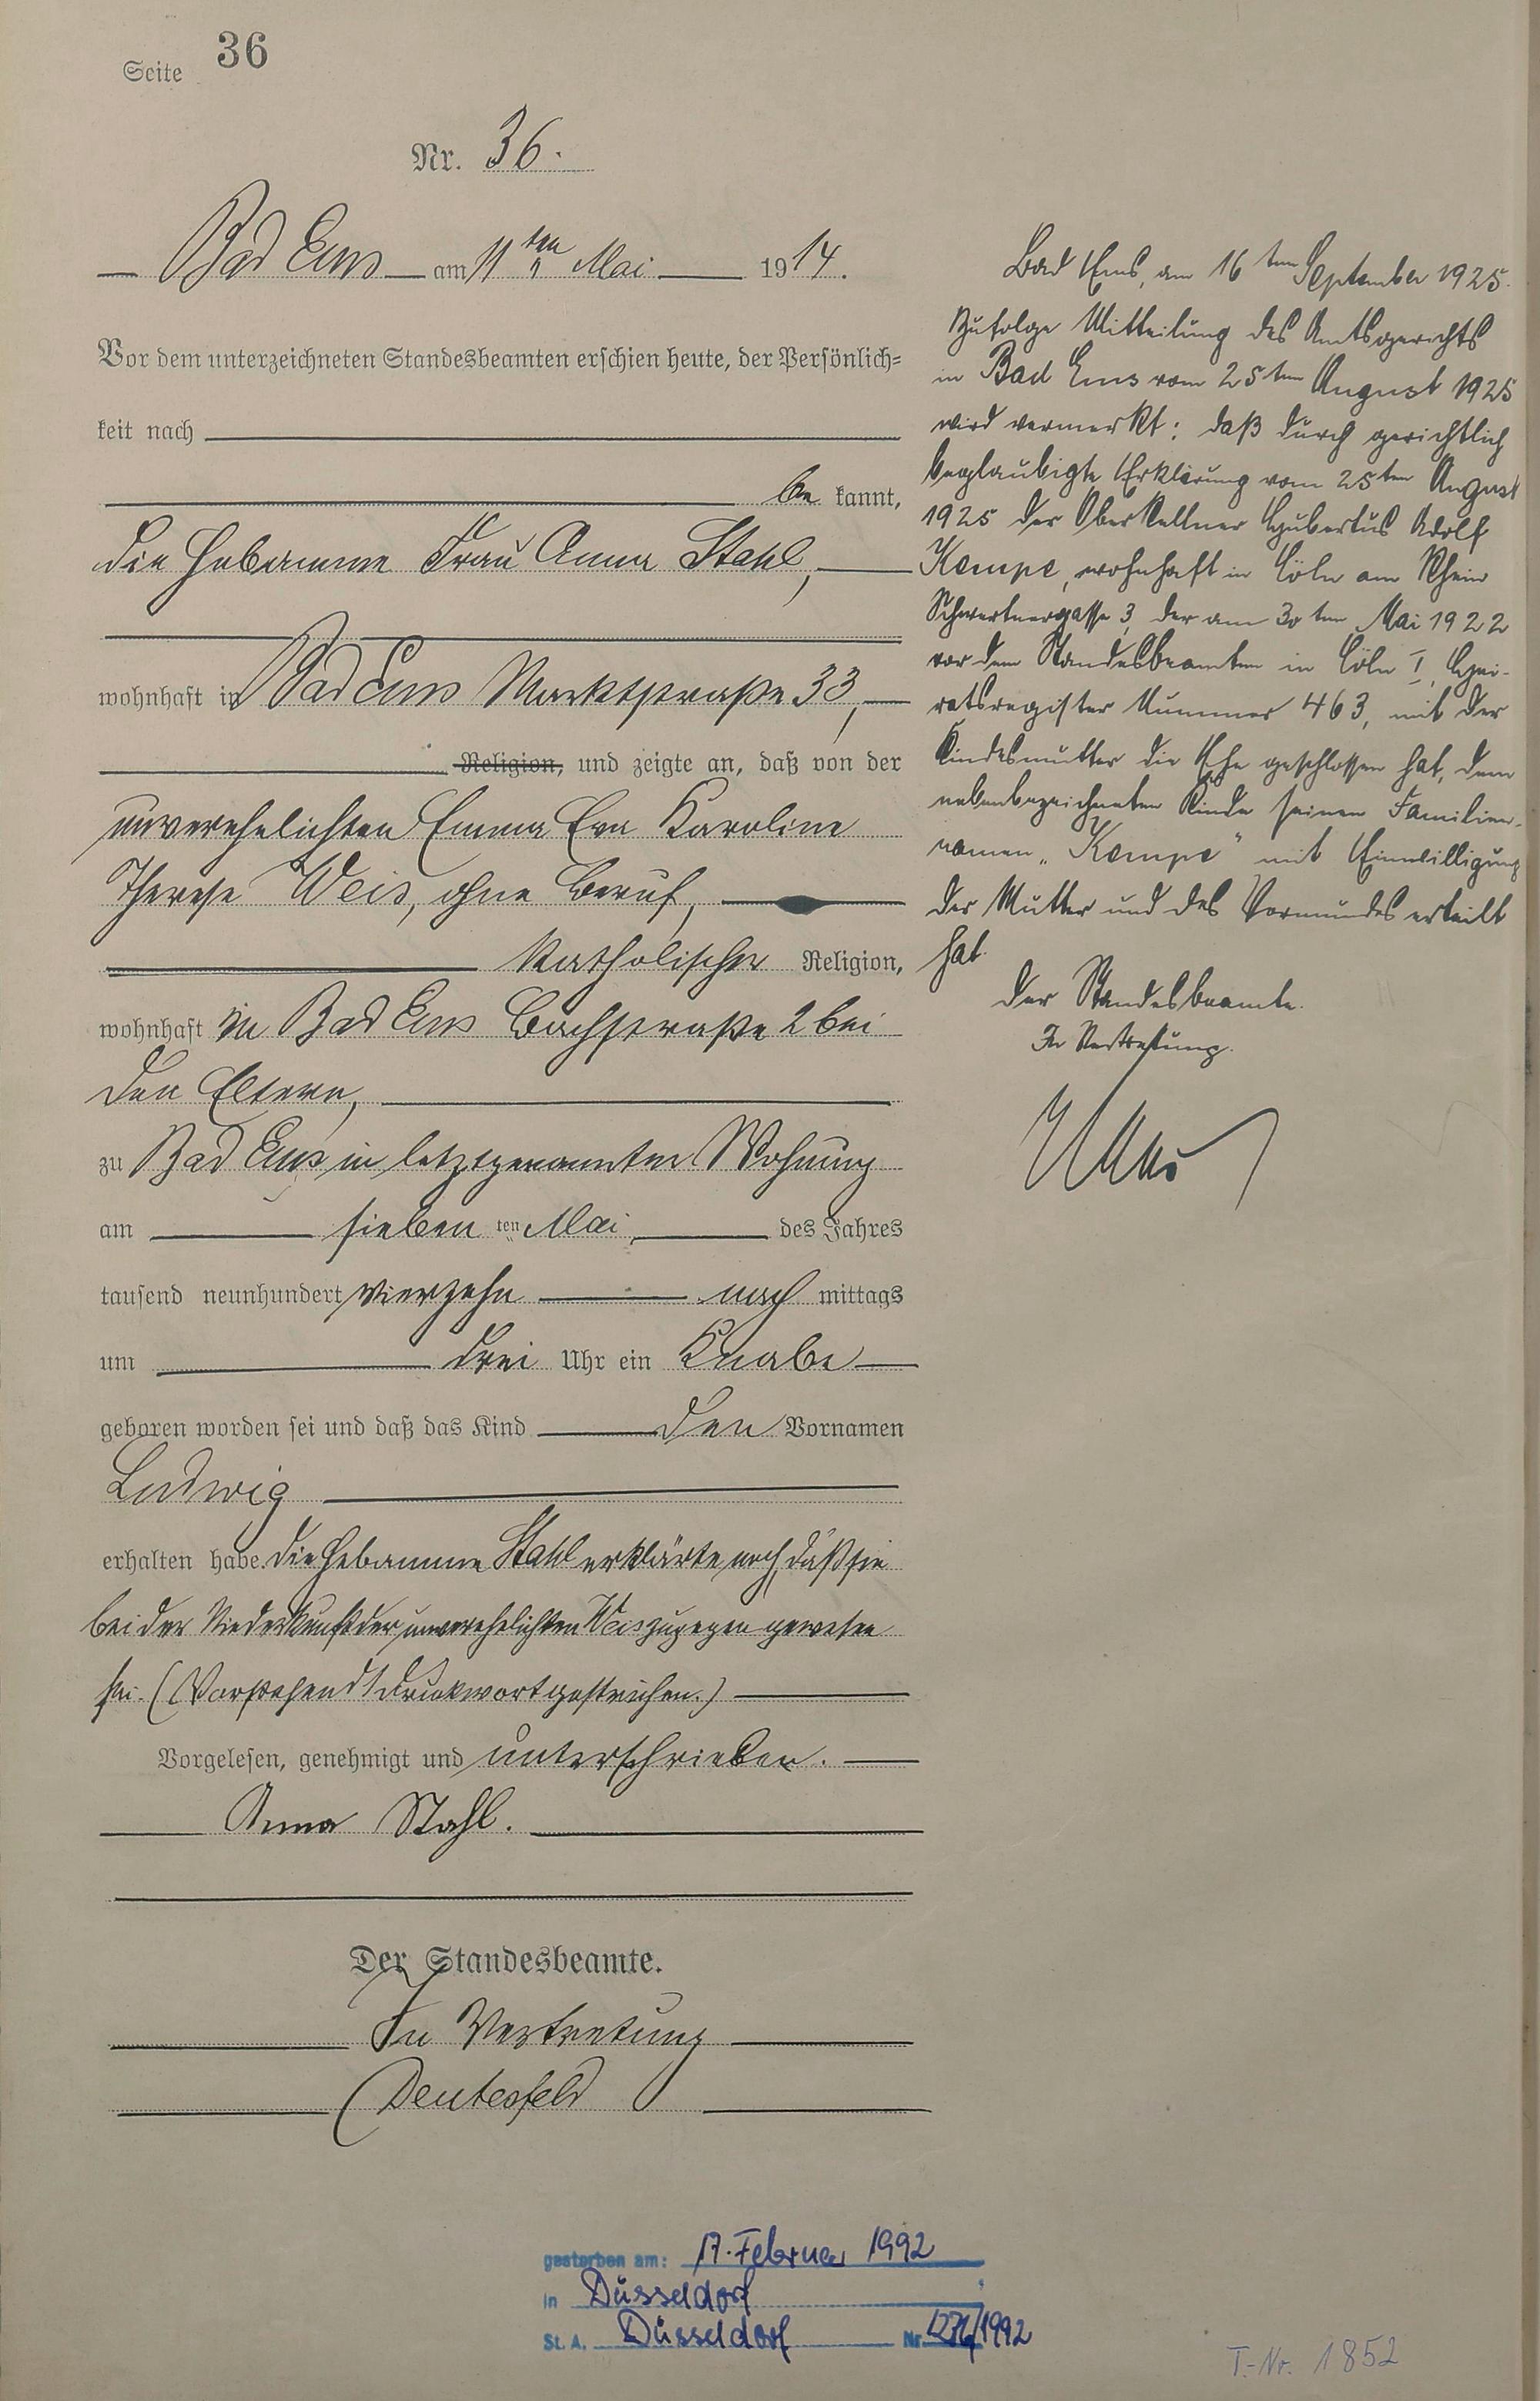 Seite 36
Nr. 36.
Bad Ems am 11ten Mai 1914.
Vor dem unterzeichneten Standesbeamten erschien heute, der Persönlich=
keit nach
be kannt,
die Hebamme Frau Anna Stahl,
wohnhaft in Bad Ems Marktstraße 33,
Religion, und zeigte an, daß von der
unverehelichten Emma Eva Karoline
Therese Weis, ohne Beruf,
katholischer Religion,
wohnhaft in Bad Ems Bachstraße 2 bei
den Eltern,
zu Bad Ems in letztgenannter Wohnung
am sieben ten Mai des Jahres
tausend neunhundert vierzehn nach mittags
um drei Uhr ein Knabe
geboren worden sei und daß das Kind den Vornamen
Ludwig
erhalten habe. Die Hebamme Stahl erklärte noch, daß sie
bei der Niederkunft der unverehelichten Weis zugegen gewesen
sei. (Vorstehend 1 Druckwort gestrichen.)
Vorgelesen, genehmigt und unterschrieben.
Anna Stahl.
Der Standesbeamte.
In Vertretung
Bad Ems, am 16ten September 1925.
Zufolge Mitteilung des Amtsgerichts
in Bad Ems vom 25ten August 1925
wird vermerkt: daß durch gerichtlich
beglaubigte Erklärung vom 25ten August
1925 der Oberkellner Hubertus Adolf
Kempe, wohnhaft in Cöln am Rhein
3, der am 30ten Mai 1922
vor dem Standesbeamten in Cöln I, Hei-
ratsregister Nummer 463, mit der
Kindesmutter die Ehe geschlossen hat, dem
nebenbezeichneten Kinde seinen Familien-
namen „Kempe" mit Einwilligung
der Mutter und des Vormundes erteilt
hat.
Der Standesbeamte.
In Vertretung.
gestorben am: 17. Februar 1992
in Düsseldorf
St. A. Düsseldorf Nr. /1992
T.-Nr. 1852